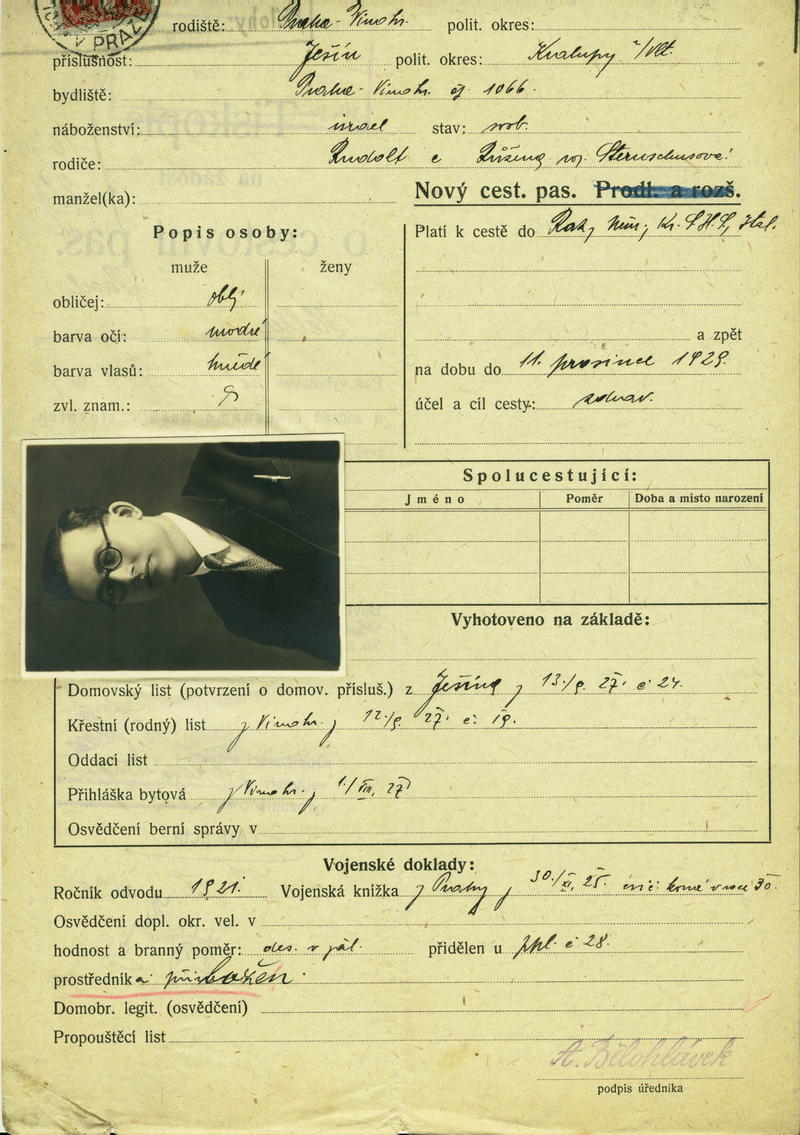 V PRAZE
rodiště: Praha-Vinohr. polit. okres:
příslušnost: Ješín polit. okres: Kralupy n/Vlt.
bydliště: Praha-Vinohr. čj. 1066.
náboženství: israel stav: svob.
rodiče: Rudolf a Růžena roz.
manžel(ka):
Nový cest. pas. Prodl. a rozš.
Popis osoby:
muže ženy
obličej: oblý
barva očí: modré
barva vlasů: hnědé
zvl. znam.:
Platí k cestě do Rak, Něm, Kr. S.H.S, Ital.
a zpět
na dobu do 11. prosince 1929.
účel a cíl cesty: zdrav.
Spolucestující:
Jméno Poměr Doba a místo narození
Vyhotoveno na základě:
Domovský list (potvrzení o domov. přísluš.) z Ješína z 13./9. 27. č 24.
Křestní (rodný) list z Vinohr. z 12/9. 27. č. 19.
Oddací list
Přihláška bytová z Vinohr. z 1./VIII. 27
Osvědčení berní správy v
Vojenské doklady:
Ročník odvodu 1921. Vojenská knížka z Prahy z 30./XI. 25.
Osvědčení dopl. okr. vel. v
hodnost a branný poměr: des. v zál. přidělen u pěpl. č 28.
prostředník
Domobr. legit. (osvědčení)
Propouštěcí list
A. Bělohlávek
podpis úředníka